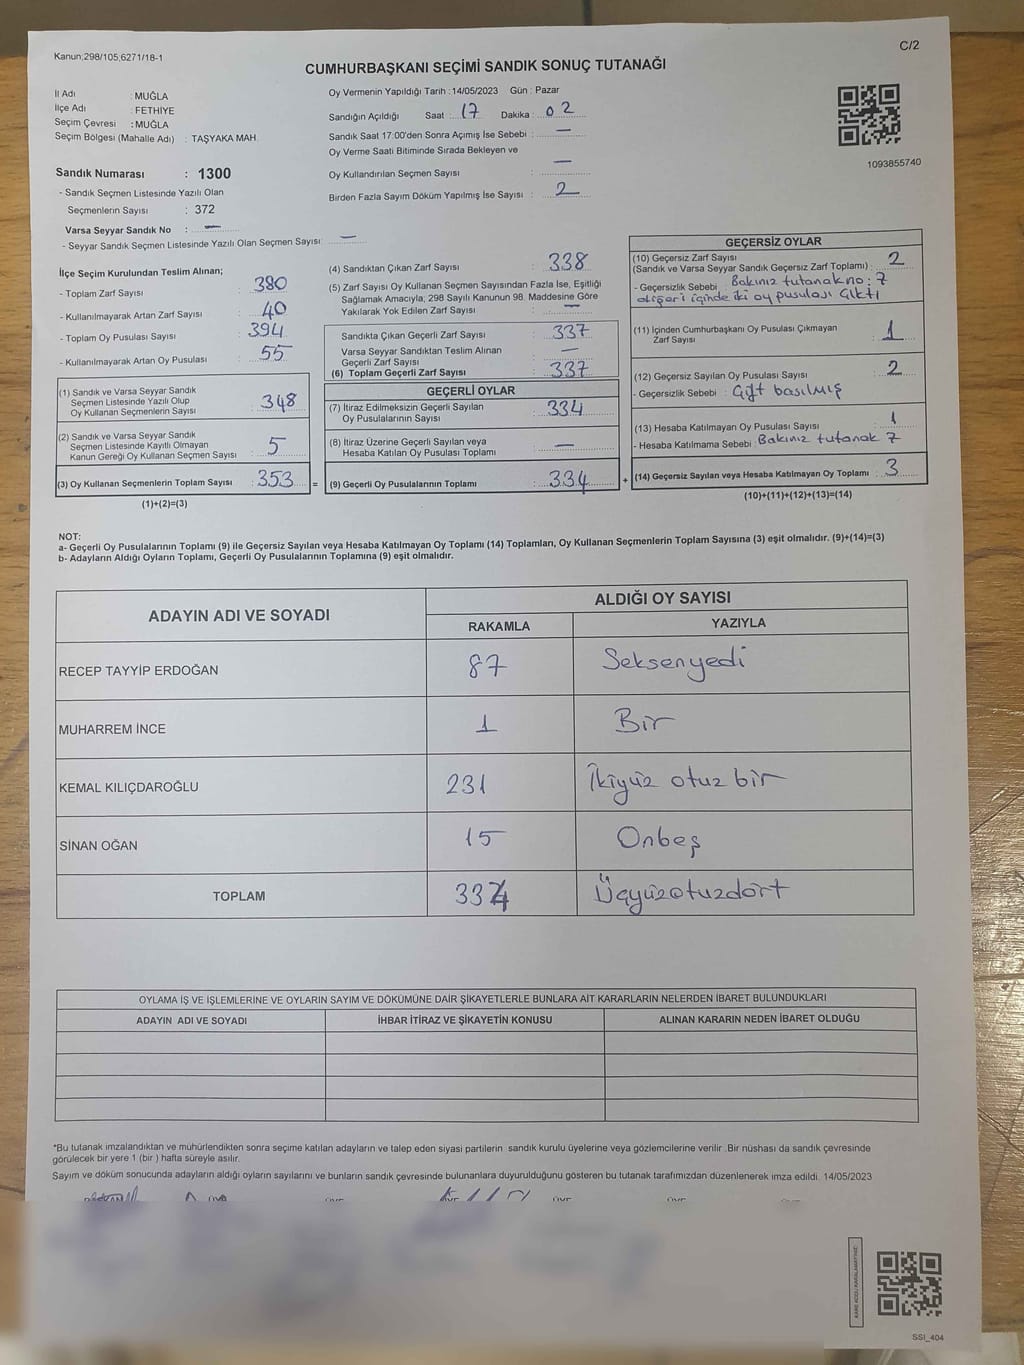 Kanun;298/105,6271/18-1
C/2
CUMHURBAŞKANI SEÇİMİ SANDIK SONUÇ TUTANAĞI
İl Adı : MUĞLA
İlçe Adı : FETHİYE
Seçim Çevresi : MUĞLA
Seçim Bölgesi (Mahalle Adı) : TAŞYAKA MAH.
Sandık Numarası : 1300
- Sandık Seçmen Listesinde Yazılı Olan
Seçmenlerin Sayısı : 372
Varsa Seyyar Sandık No : —
- Seyyar Sandık Seçmen Listesinde Yazılı Olan Seçmen Sayısı: —
Oy Vermenin Yapıldığı Tarih :14/05/2023 Gün : Pazar
Sandığın Açıldığı Saat : 17 Dakika : 02
Sandık Saat 17:00'den Sonra Açımış İse Sebebi : —
Oy Verme Saati Bitiminde Sırada Bekleyen ve
Oy Kullandırılan Seçmen Sayısı : —
Birden Fazla Sayım Döküm Yapılmış İse Sayısı : 2
1093855740
İlçe Seçim Kurulundan Teslim Alınan;
- Toplam Zarf Sayısı : 380
- Kullanılmayarak Artan Zarf Sayısı : 40
- Toplam Oy Pusulası Sayısı : 394
- Kullanılmayarak Artan Oy Pusulası : 55
(1) Sandık ve Varsa Seyyar Sandık
Seçmen Listesinde Yazılı Olup
Oy Kullanan Seçmenlerin Sayısı : 348
(2) Sandık ve Varsa Seyyar Sandık
Seçmen Listesinde Kayıtlı Olmayan
Kanun Gereği Oy Kullanan Seçmen Sayısı : 5
(3) Oy Kullanan Seçmenlerin Toplam Sayısı : 353 =
(1)+(2)=(3)
(4) Sandıktan Çıkan Zarf Sayısı : 338
(5) Zarf Sayısı Oy Kullanan Seçmen Sayısından Fazla İse, Eşitliği
Sağlamak Amacıyla, 298 Sayılı Kanunun 98. Maddesine Göre
Yakılarak Yok Edilen Zarf Sayısı : —
Sandıkta Çıkan Geçerli Zarf Sayısı : 337
Varsa Seyyar Sandıktan Teslim Alınan
Geçerli Zarf Sayısı : —
(6) Toplam Geçerli Zarf Sayısı : 337
GEÇERLİ OYLAR
(7) İtiraz Edilmeksizin Geçerli Sayılan
Oy Pusulalarının Sayısı : 334
(8) İtiraz Üzerine Geçerli Sayılan veya
Hesaba Katılan Oy Pusulası Toplamı : —
(9) Geçerli Oy Pusulalarının Toplamı : 334 +
GEÇERSİZ OYLAR
(10) Geçersiz Zarf Sayısı
(Sandık ve Varsa Seyyar Sandık Geçersiz Zarf Toplamı) : 2
- Geçersizlik Sebebi : Bakınız tutanak no: 7
diğeri içinde iki oy pusulası çıktı
(11) İçinden Cumhurbaşkanı Oy Pusulası Çıkmayan
Zarf Sayısı : 1
(12) Geçersiz Sayılan Oy Pusulası Sayısı : 2
- Geçersizlik Sebebi : Çift basılmış
(13) Hesaba Katılmayan Oy Pusulası Sayısı : 1
- Hesaba Katılmama Sebebi : Bakınız tutanak 7
(14) Geçersiz Sayılan veya Hesaba Katılmayan Oy Toplamı : 3
(10)+(11)+(12)+(13)=(14)
NOT:
a- Geçerli Oy Pusulalarının Toplamı (9) ile Geçersiz Sayılan veya Hesaba Katılmayan Oy Toplamı (14) Toplamları, Oy Kullanan Seçmenlerin Toplam Sayısına (3) eşit olmalıdır. (9)+(14)=(3)
b- Adayların Aldığı Oyların Toplamı, Geçerli Oy Pusulalarının Toplamına (9) eşit olmalıdır.
ADAYIN ADI VE SOYADI ALDIĞI OY SAYISI
RAKAMLA YAZIYLA
RECEP TAYYİP ERDOĞAN 87 Seksenyedi
MUHARREM İNCE 1 Bir
KEMAL KILIÇDAROĞLU 231 İkiyüz otuz bir
SİNAN OĞAN 15 Onbeş
TOPLAM 334 Üçyüzotuzdört
OYLAMA İŞ VE İŞLEMLERİNE VE OYLARIN SAYIM VE DÖKÜMÜNE DAİR ŞİKAYETLERLE BUNLARA AİT KARARLARIN NELERDEN İBARET BULUNDUKLARI
ADAYIN ADI VE SOYADI İHBAR İTİRAZ VE ŞİKAYETİN KONUSU ALINAN KARARIN NEDEN İBARET OLDUĞU
*Bu tutanak imzalandıktan ve mühürlendikten sonra seçime katılan adayların ve talep eden siyasi partilerin sandık kurulu üyelerine veya gözlemcilerine verilir. Bir nüshası da sandık çevresinde
görülecek bir yere 1 (bir) hafta süreyle asılır.
Sayım ve döküm sonucunda adayların aldığı oyların sayılarını ve bunların sandık çevresinde bulunanlara duyurulduğunu gösteren bu tutanak tarafımızdan düzenlenerek imza edildi. 14/05/2023
SSI_404